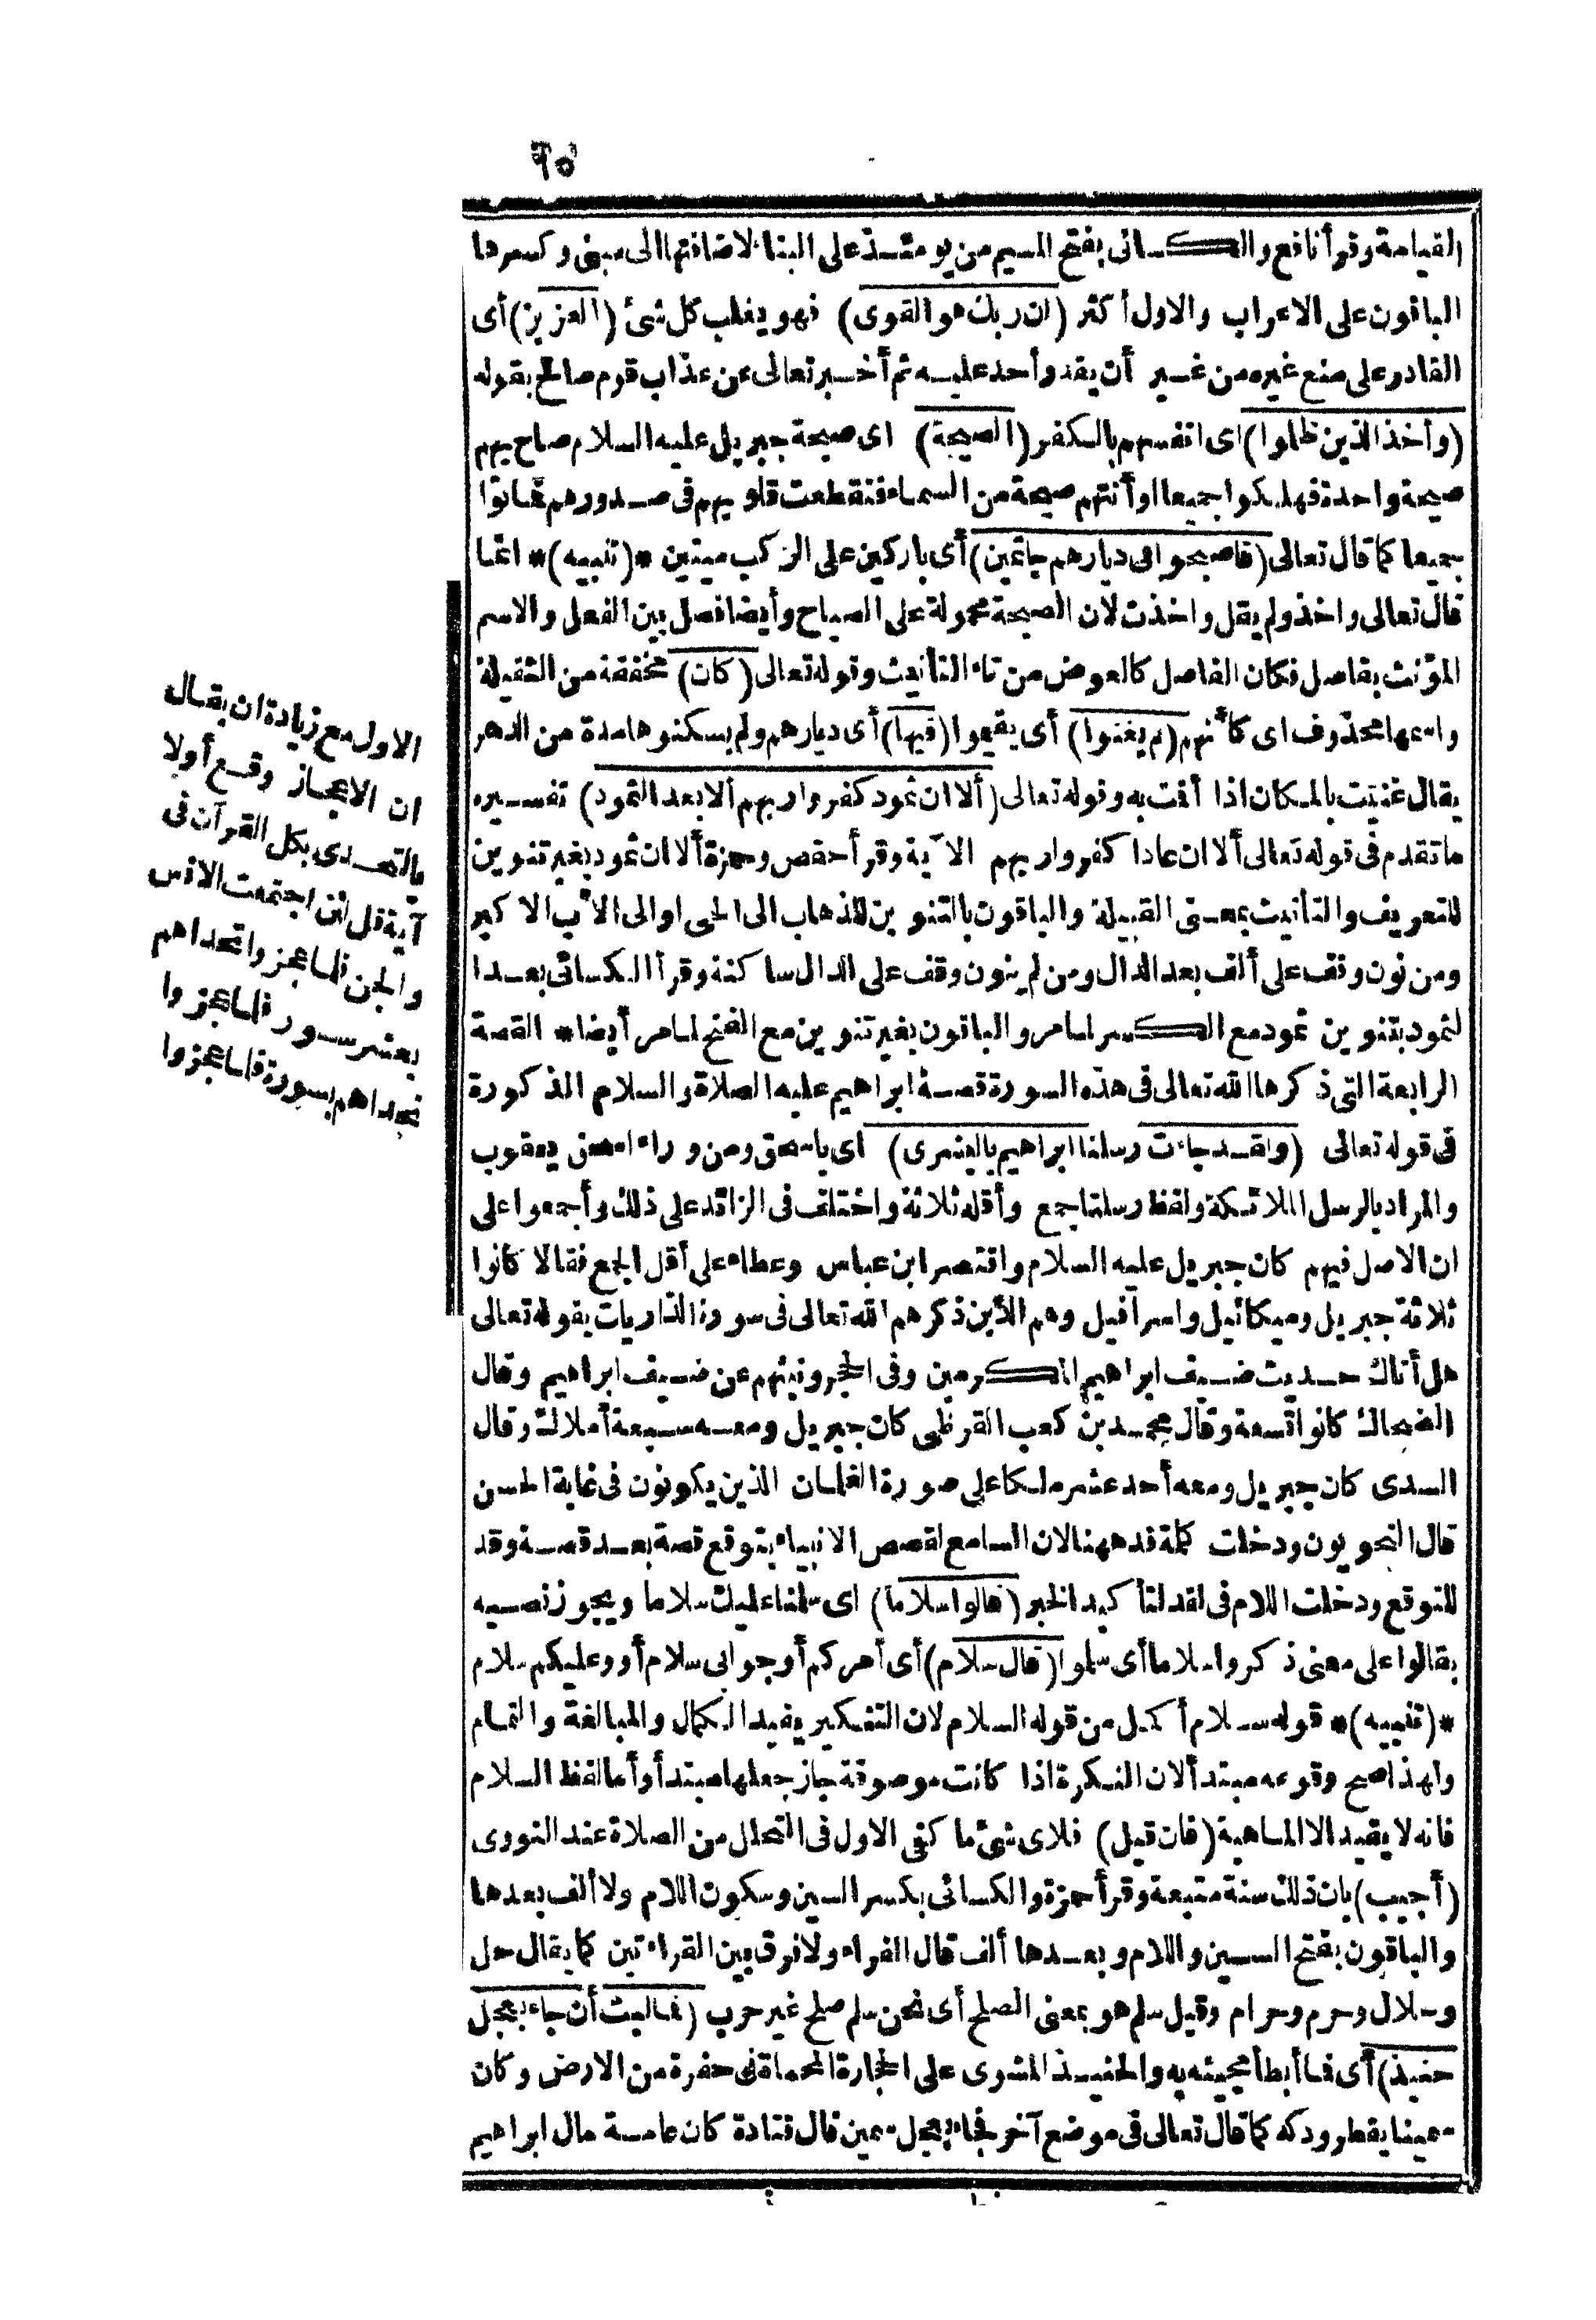 ٦٥
القيامة وقرأ نافع والكسائى بفتح الميم من يومئذ على البناء لاضافتها الى مبنى وكسرها
الباقون على الاعراب والاول أكثر (ان ربك هو القوى) فهو يغلب كل شئ (العزيز) أى
القادر على منع غيره من غير أن يقدر أحد عليه ثم أخبر تعالى عن عذاب قوم صالح بقوله
(وأخذ الذين ظلموا) اى انفسهم بالكفر (الصيحة) اى صيحة جبريل عليه السلام صاح بهم
صيحة واحدة فهلكوا جميعا او أتتهم صيحة من السماء فتقطعت قلوبهم فى صدورهم فماتوا
جميعا كما قال تعالى (فاصبحوا فى ديارهم جاثمين) أى باركين على الركب ميتين *(تنبيه)* انما
قال تعالى واخذ ولم يقل واخذت لان الصيحة محمولة على الصياح وأيضا فصل بين الفعل والاسم
المؤنث بفاصل فكان الفاصل كالعوض من تاء التأنيث وقوله تعالى (كان) مخففة من الثقيلة
واسمها محذوف اى كأنهم (لم يغنوا) أى يقيموا (فيها) أى ديارهم ولم يسكنوها مدة من الدهر
يقال غنيت بالمكان اذا أقمت به وقوله تعالى (ألا ان ثمود كفروا ربهم ألا بعدا لثمود) تفسيره
ما تقدم فى قوله تعالى ألا ان عادا كفروا ربهم الآية وقرأ حفص وحمزة ألا ان ثمود بغير تنوين
للتعريف والتأنيث بمعنى القبيلة والباقون بالتنوين للذهاب الى الحى او الى الأب الاكبر
ومن نون وقف على ألف بعد الدال ومن لم ينون وقف على الدال ساكنة وقرأ الكسائى بعدا
لثمود بتنوين ثمود مع الكسر لما مر والباقون بغير تنوين مع الفتح لما مر أيضا * القصة
الرابعة التى ذكرها الله تعالى فى هذه السورة قصة ابراهيم عليه الصلاة والسلام المذكورة
فى قوله تعالى (ولقد جاءت رسلنا ابراهيم بالبشرى) اى باسحق ومن وراء اسحق يعقوب
والمراد بالرسل الملائكة ولفظ رسلنا جمع وأقله ثلاثة واختلف فى الزائد على ذلك وأجمعوا على
ان الاصل فيهم كان جبريل عليه السلام واقتصر ابن عباس وعطاء على أقل الجمع فقالا كانوا
ثلاثة جبريل وميكائيل واسرافيل وهم الذين ذكرهم الله تعالى فى سورة الذاريات بقوله تعالى
هل أتاك حديث ضيف ابراهيم المكرمين وفى الحجر ونبئهم عن ضيف ابراهيم وقال
الضحاك كانوا تسعة وقال محمد بن كعب القرظى كان جبريل ومعه سبعة أملاك وقال
السدى كان جبريل ومعه أحد عشر ملكا على صورة الغلمان الذين يكونون فى غاية الحسن
قال النحويون ودخلت كلمة قد ههنا لان السامع لقصص الانبياء يتوقع قصة بعد قصة وقد
للتوقع ودخلت اللام فى لقد لتأكيد الخبر (قالوا سلاما) اى سلمنا عليك سلاما ويجوز نصبه
بقالوا على معنى ذكروا سلاما أى سلموا (قال سلام) أى أمركم أو جوابى سلام أو وعليكم سلام
*(تنبيه)* قوله سلام أكمل من قوله السلام لان التنكير يفيد الكمال والمبالغة والتمام
ولهذا صح وقوعه مبتدأ لان النكرة اذا كانت موصوفة جاز جعلها مبتدأ وأما لفظ السلام
فانه لا يفيد الا الماهية (فان قيل) فلاى شئ ما كفى الاول فى التحلل من الصلاة عند النووى
(أجيب) بان ذلك سنة متبعة وقرأ حمزة والكسائى بكسر السين وسكون اللام ولا ألف بعدها
والباقون بفتح السين واللام وبعدها ألف قال الفراء ولا فرق بين القراءتين كما يقال حل
وحلال وحرم وحرام وقيل سلم هو بمعنى الصلح أى نحن سلم صلح غير حرب (فما لبث أن جاء بعجل
حنيذ) أى فما أبطأ مجيئه به والحنيذ المشوى على الحجارة المحماة فى حفرة من الارض وكان
سمينا يقطر ودكه كما قال تعالى فى موضع آخر فجاء بعجل سمين قال قتادة كان عامة مال ابراهيم
الاول مع زيادة ان يقال
ان الاعجاز وقع أولا
بالتحدى بكل القرآن فى
آية قل لئن اجتمعت الانس
والجن فلما عجزوا تحداهم
بعشر سور فلما عجزوا
تحداهم بسورة فلما عجزوا